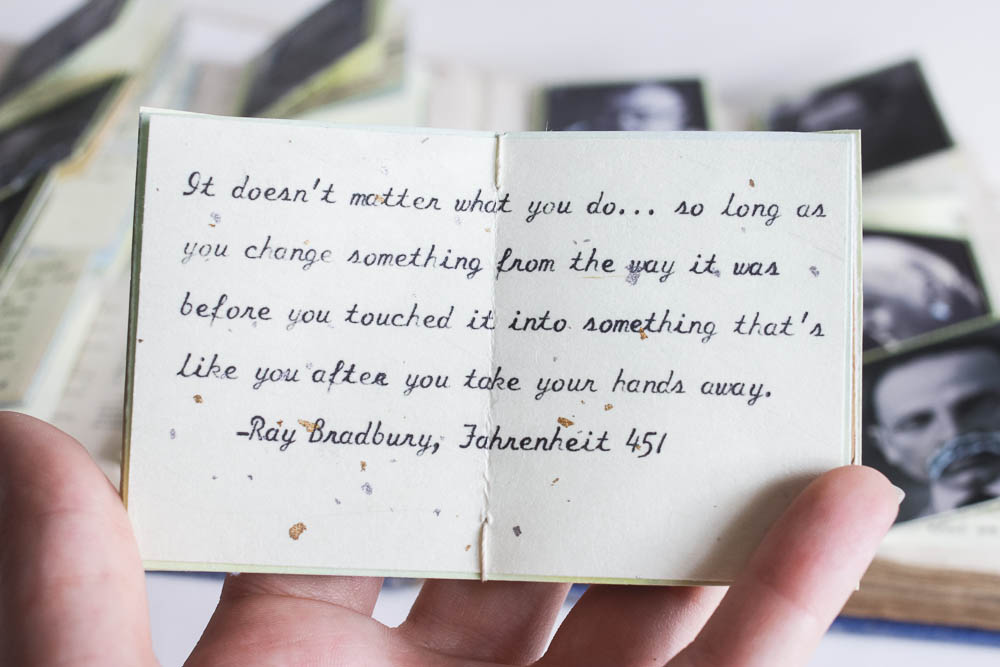 It doesn't matter what you do... so long as
you change something from the way it was
before you touched it into something that's
like you after you take your hands away.
-Ray Bradbury, Fahrenheit 451